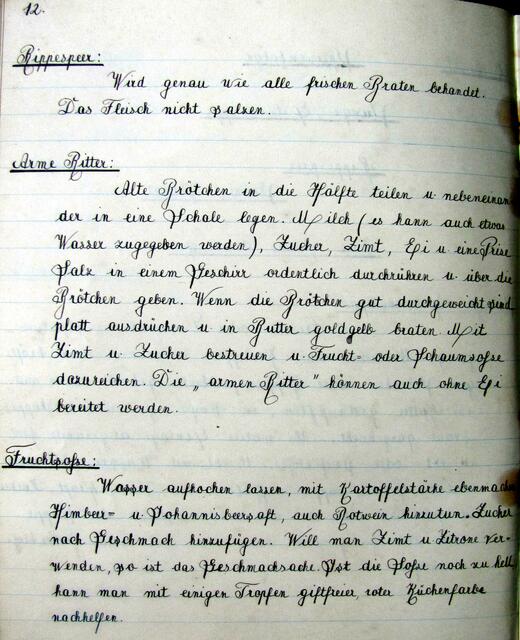 12.
Rippespeer:
Wird genau wie alle frischen Braten behandet.
Das Fleisch nicht salzen.
Arme Ritter:
Alte Brötchen in die Hälfte teilen u. nebeneinan
der in eine Schale legen. Milch (es kann auch etwas
Wasser zugegeben werden), Zucker, Zimt, Ei u. eine Prise
Salz in einem Geschirr ordentlich durchrühren u. über die
Brötchen geben. Wenn die Brötchen gut durchgeweicht sind
platt ausdrücken u. in Butter goldgelb braten. Mit
Zimt u. Zucker bestreuen u. Frucht- oder Schaumsosse
dazureichen. Die „armen Ritter" können auch ohne Ei
bereitet werden.
Fruchtsosse:
Wasser aufkochen lassen, mit Kartoffelstärke ebenmachen
Himber- u. Johannisbeersaft, auch Rotwein hinzutun. Zucker
nach Geschmach hinzufügen. Will man Zimt u. Zitrone ver-
wenden, so ist das Geschmacksache. Ist die Sosse noch zu hell
kann man mit einigen Tropfen giftfreier, roter Küchenfarbe
nachhelfen.